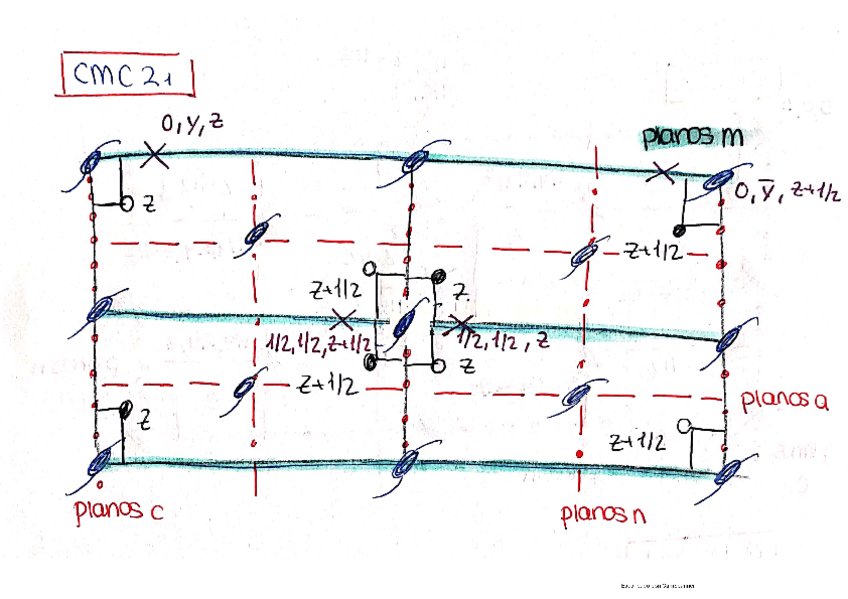 CMC21
0, y, z
planos m
0, ȳ, z+1/2
z
z+1/2
z+1/2
z
1/2, 1/2, z+1/2
1/2, 1/2, z
z
z+1/2
planos a
z
z+1/2
planos c
planos n